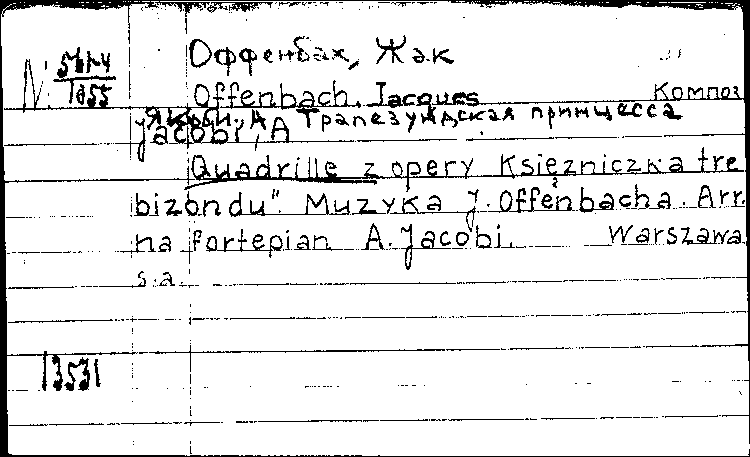 Оффенбах, Жак
N:
1055
Offenbach, Jacques Композ
Якоби, А Трапезундская принцесса
Jacobi, A
Quadrille z opery Księzniczka tre
bizondu". Muzyka J. Offenbacha. Arr.
na fortepian A. Jacobi. Warszawa
s.a.
13531